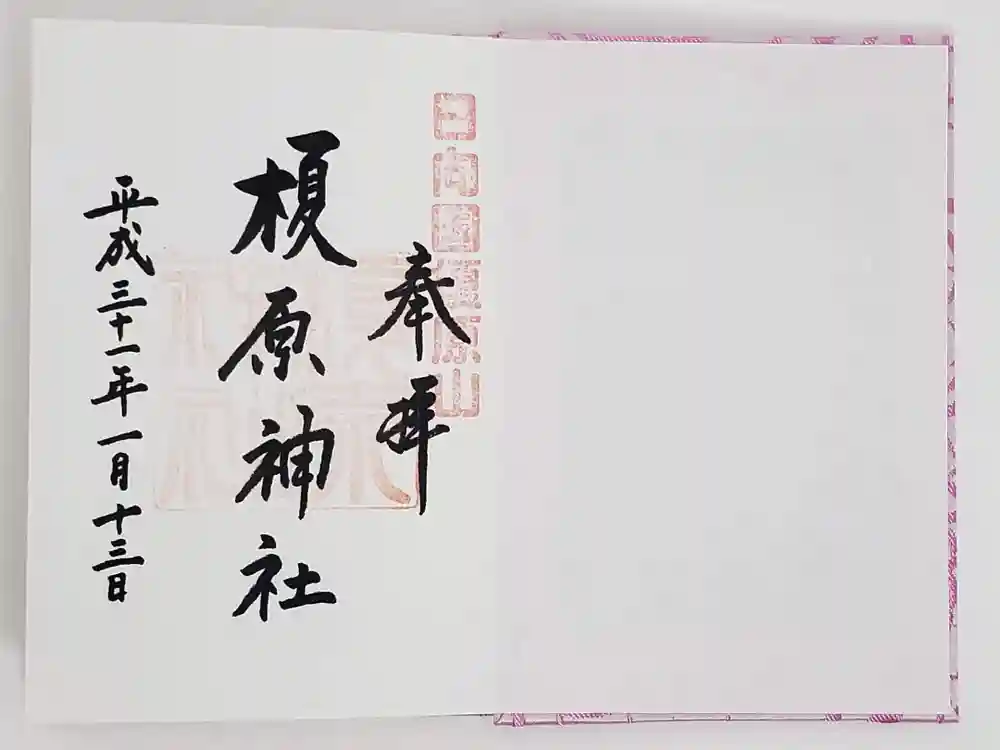 日向國榎原山
奉拝
榎原神社
平成三十一年一月十三日